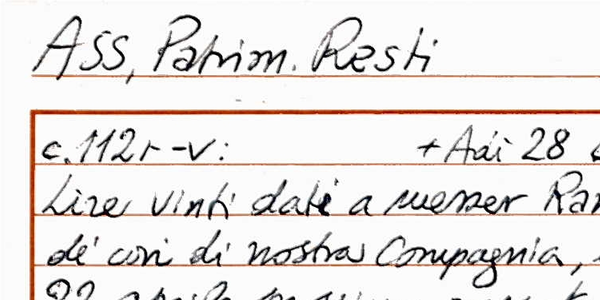 Ass. Patrim. Resti
c.112r-v: + Adi 28
Lire vinti date a messer
de' cori di nostra Compagnia,
22 aprile